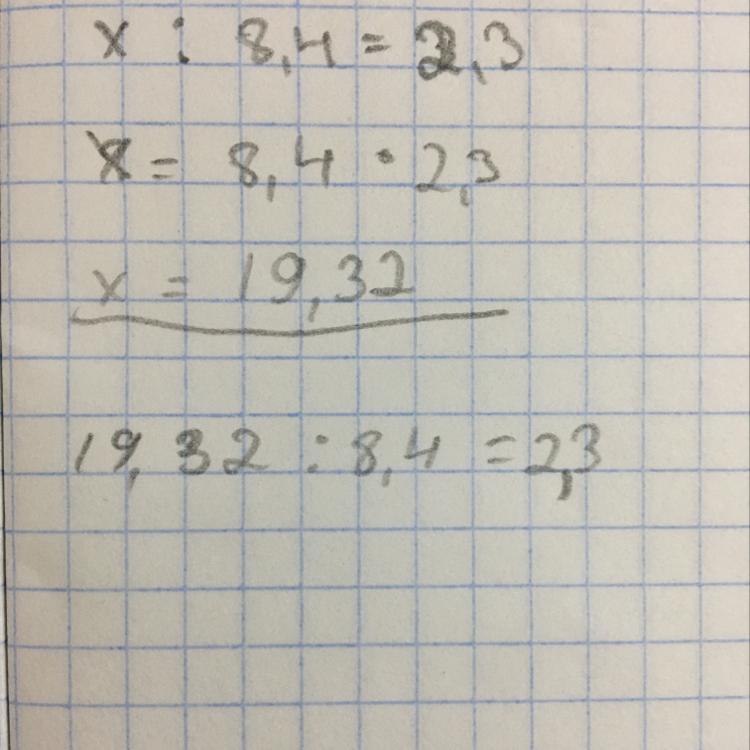 x : 8,4 = 2,3
x = 8,4 · 2,3
x = 19,32
19,32 : 8,4 = 2,3